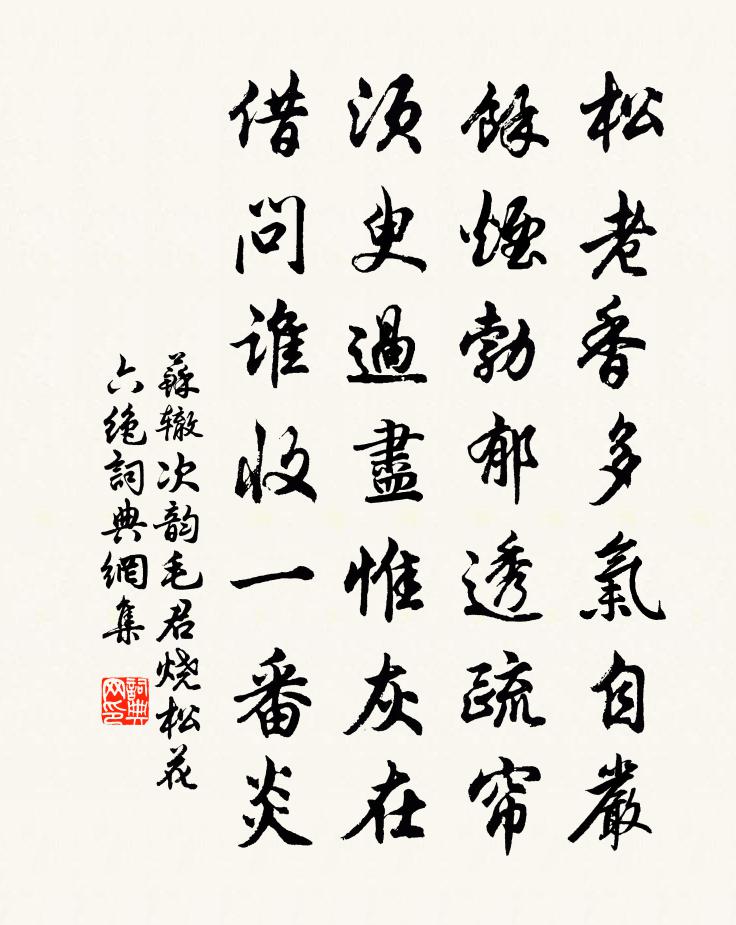 松老香多氣自嚴
餘煙勃郁透疏帘
須臾過盡惟灰在
借問誰收一番炎
蘇辙次韵毛君烧松花
六绝詞典網集
詞典网印